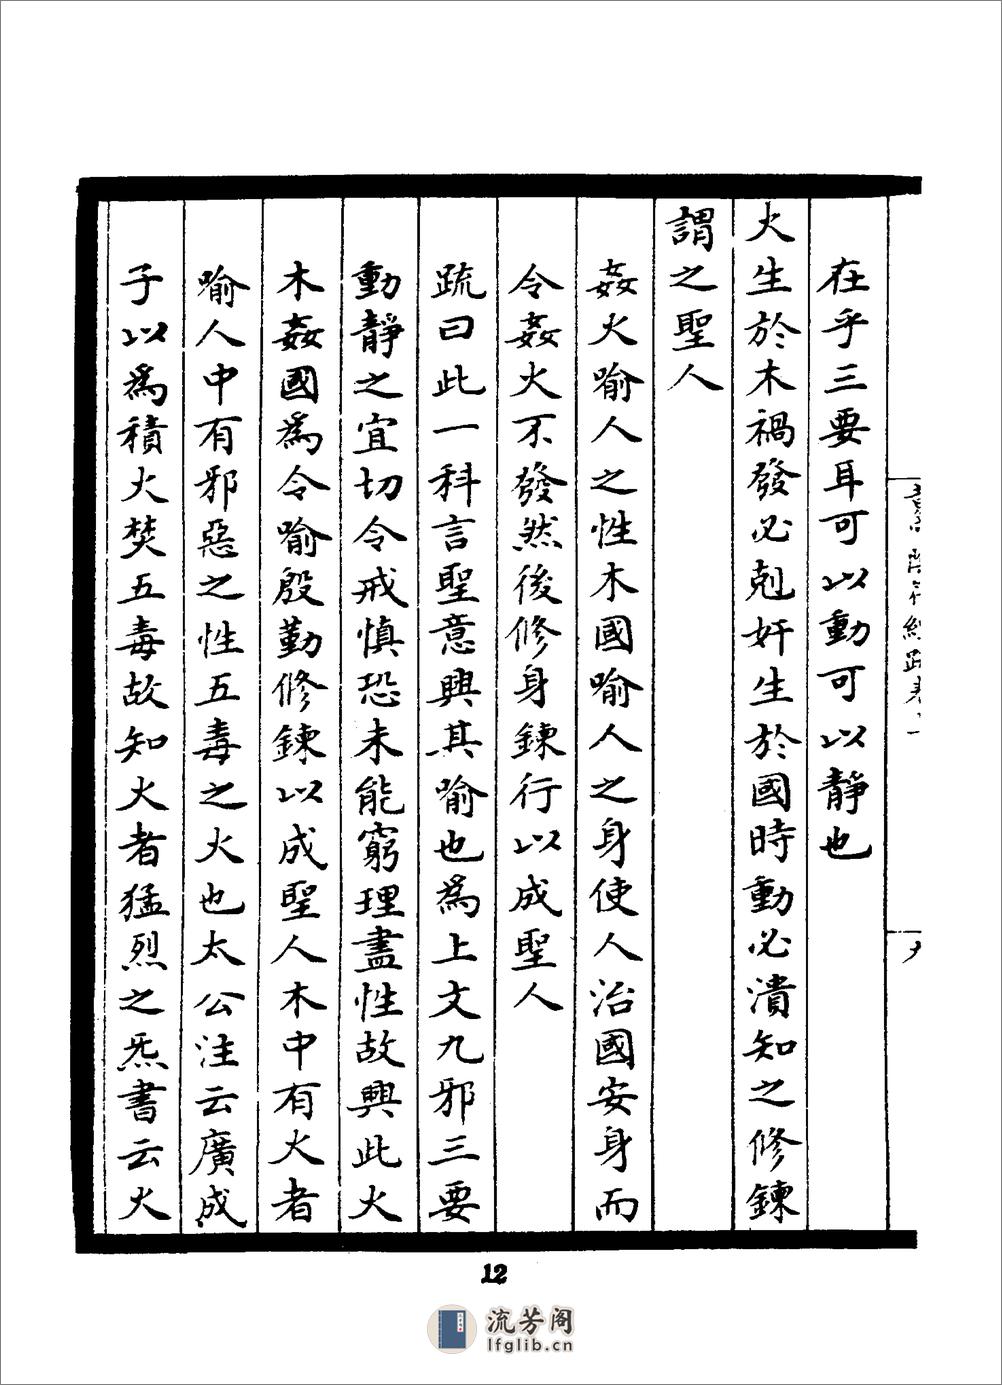 在乎三要耳可以動可以靜也
火生於木禍發必剋奸生於國時動必潰知之修鍊
謂之聖人
姦火喻人之性木國喻人之身使人治國安身而
令姦火不發然後修身鍊行以成聖人
疏曰此一科言聖意興其喻也為上文九邪三要
動靜之宜切令戒慎恐未能窮理盡性故興此火
木姦國為令喻殷勤修鍊以成聖人木中有火者
喻人中有邪惡之性五毒之火也太公注云廣成
子以為積火焚五毒故知火者猛烈之炁書云火
12
流芳阁
lfglib.cn